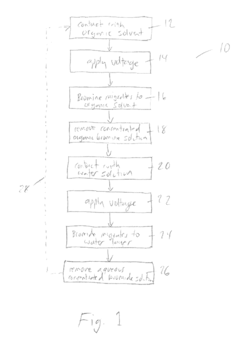 contact with
organic solvent
12
10
apply voltage
14
Bromine migrates to
organic solvent
16
remove concentrated
organic bromine solution
18
contact with
water solution
20
apply voltage
22
Bromide migrates to
water layer
24
remove aqueous
concentrated bromide
26
28
Fig 1